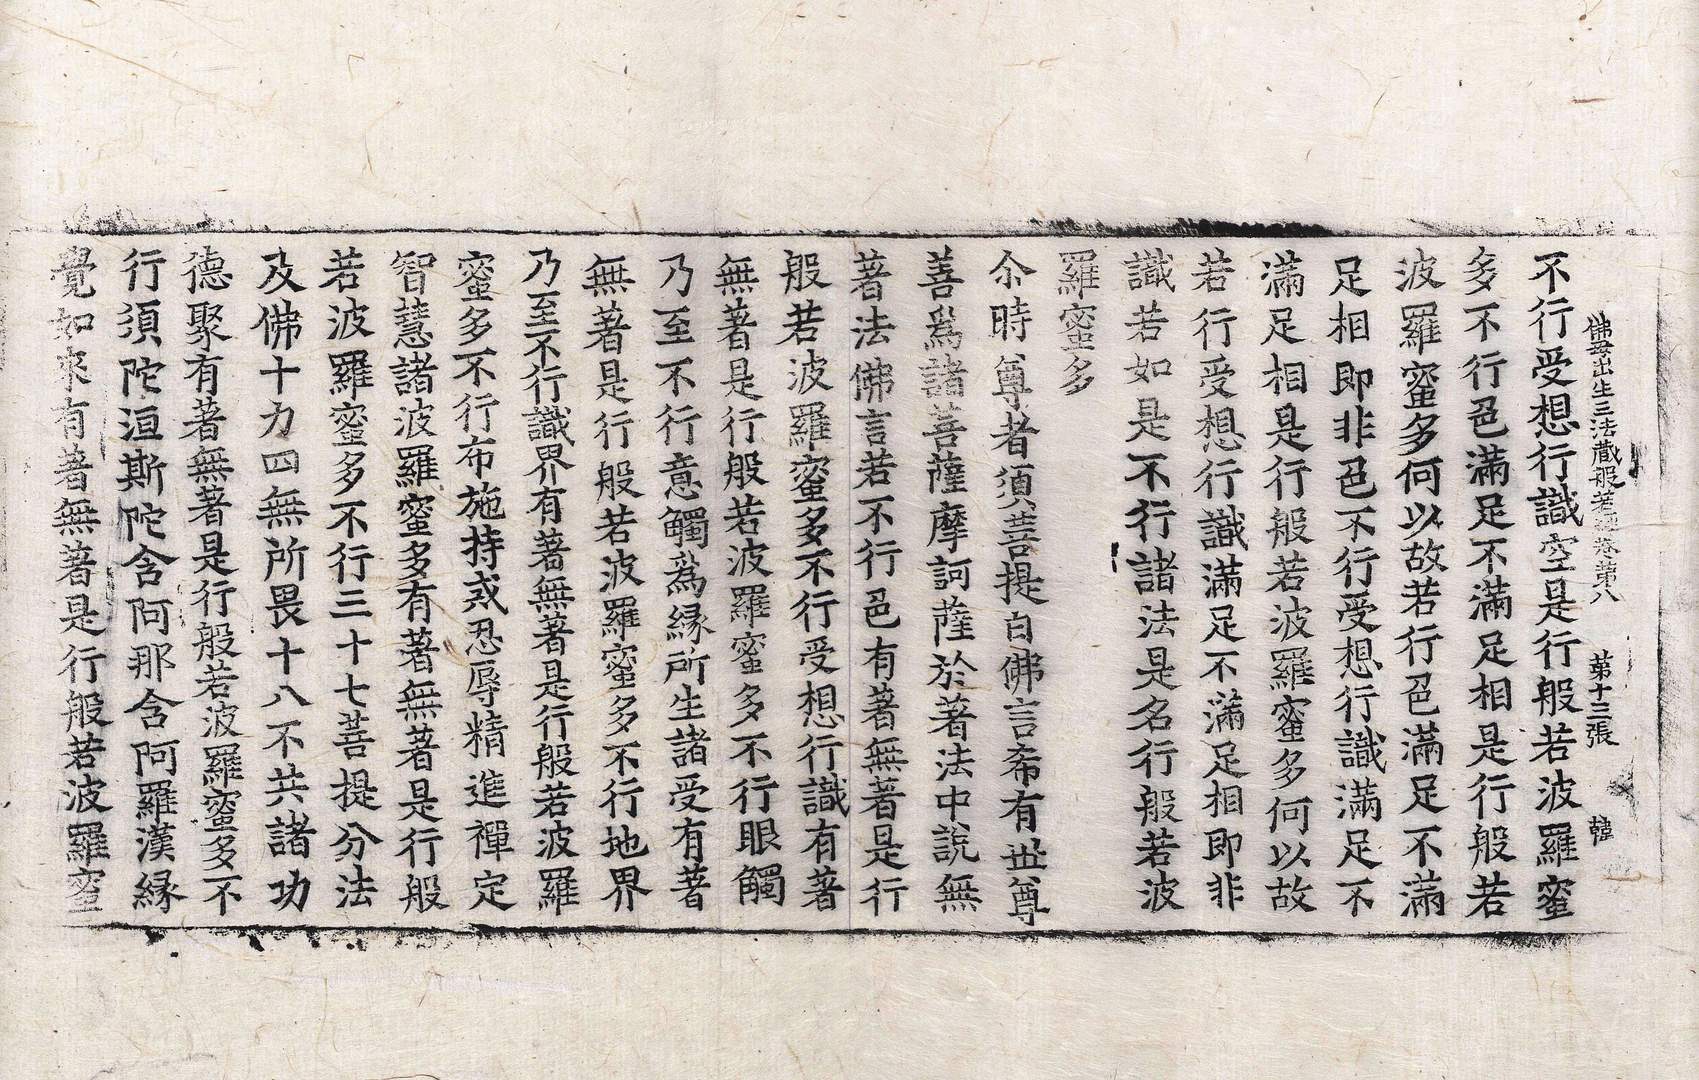 佛母出生三法藏般若經卷第八　第十三張　韓
不行受想行識空是行般若波羅蜜
多不行色滿足不滿足相是行般若
波羅蜜多何以故若行色滿足不滿
足相即非色不行受想行識滿足不
滿足相是行般若波羅蜜多何以故
若行受想行識滿足不滿足相即非
識若如是不行諸法是名行般若波
羅蜜多
尒時尊者須菩提白佛言希有世尊
善爲諸菩薩摩訶薩於著法中說無
著法佛言若不行色有著無著是行
般若波羅蜜多不行受想行識有著
無著是行般若波羅蜜多不行眼觸
乃至不行意觸爲緣所生諸受有著
無著是行般若波羅蜜多不行地界
乃至不行識界有著無著是行般若波羅
蜜多不行布施持戒忍辱精進禪定
智慧諸波羅蜜多有著無著是行般
若波羅蜜多不行三十七菩提分法
及佛十力四無所畏十八不共諸功
德聚有著無著是行般若波羅蜜多不
行須陀洹斯陀含阿那含阿羅漢緣
覺如來有著無著是行般若波羅蜜